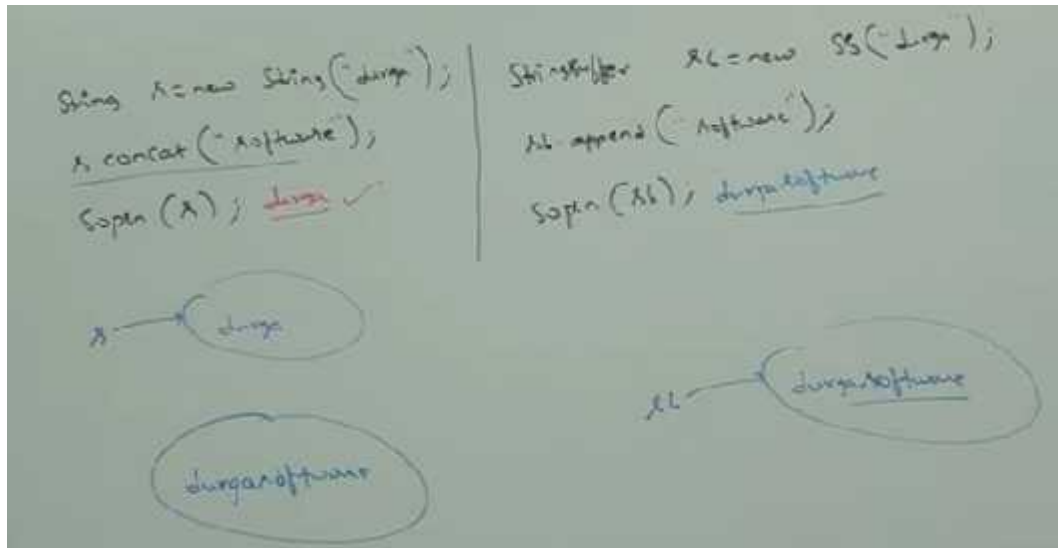 String s=new String("durga");
s.concat("software");
Sopln(s); durga ✓
s
durga
durgasoftware
StringBuffer sb=new SB("durga");
sb.append("software");
Sopln(sb); durgasoftware
sb
durgasoftware